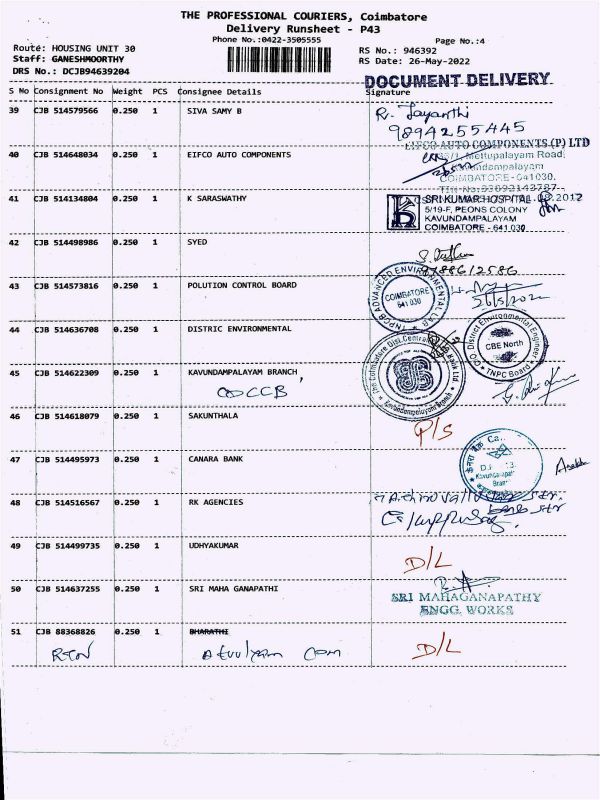 THE PROFESSIONAL COURIERS, Coimbatore
Delivery Runsheet - P43
Phone No.:0422-3505555
Page No.:4
Route: HOUSING UNIT 30
RS No.: 946392
Staff: GANESHMOORTHY
RS Date: 26-May-2022
DRS No.: DCJB94639204
DOCUMENT DELIVERY
S No Consignment No Weight PCS Consignee Details Signature
39 CJB 514579566 0.250 1 SIVA SAMY B
R. Jayanthi
9894255445
EIFCO AUTO COMPONENTS (P) LTD
40 CJB 514648034 0.250 1 EIFCO AUTO COMPONENTS
Mettupalayam Road,
Kavundampalayam
COIMBATORE - 641030.
41 CJB 514134804 0.250 1 K SARASWATHY
SRI KUMAR HOSPITAL
5/19-F, PEONS COLONY
KAVUNDAMPALAYAM
COIMBATORE - 641 030
42 CJB 514498986 0.250 1 SYED
9788612586
43 CJB 514573816 0.250 1 POLUTION CONTROL BOARD
TNPCB ADVANCED ENVIRONMENTAL LAB
COIMBATORE
641 030
26/5/2022
44 CJB 514636708 0.250 1 DISTRIC ENVIRONMENTAL
O/O District Environmental Engineer
CBE North
TNPC Board
45 CJB 514622309 0.250 1 KAVUNDAMPALAYAM BRANCH
CDCCB
The Coimbatore Dist. Central Bank Ltd
Kavundampalayam Branch
46 CJB 514618079 0.250 1 SAKUNTHALA
P/S
47 CJB 514495973 0.250 1 CANARA BANK
48 CJB 514516567 0.250 1 RK AGENCIES
49 CJB 514499735 0.250 1 UDHYAKUMAR
D/L
50 CJB 514637255 0.250 1 SRI MAHA GANAPATHI
SRI MAHAGANAPATHY
ENGG. WORKS
51 CJB 88368826 0.250 1 BHARATHI
RTN
com
D/L